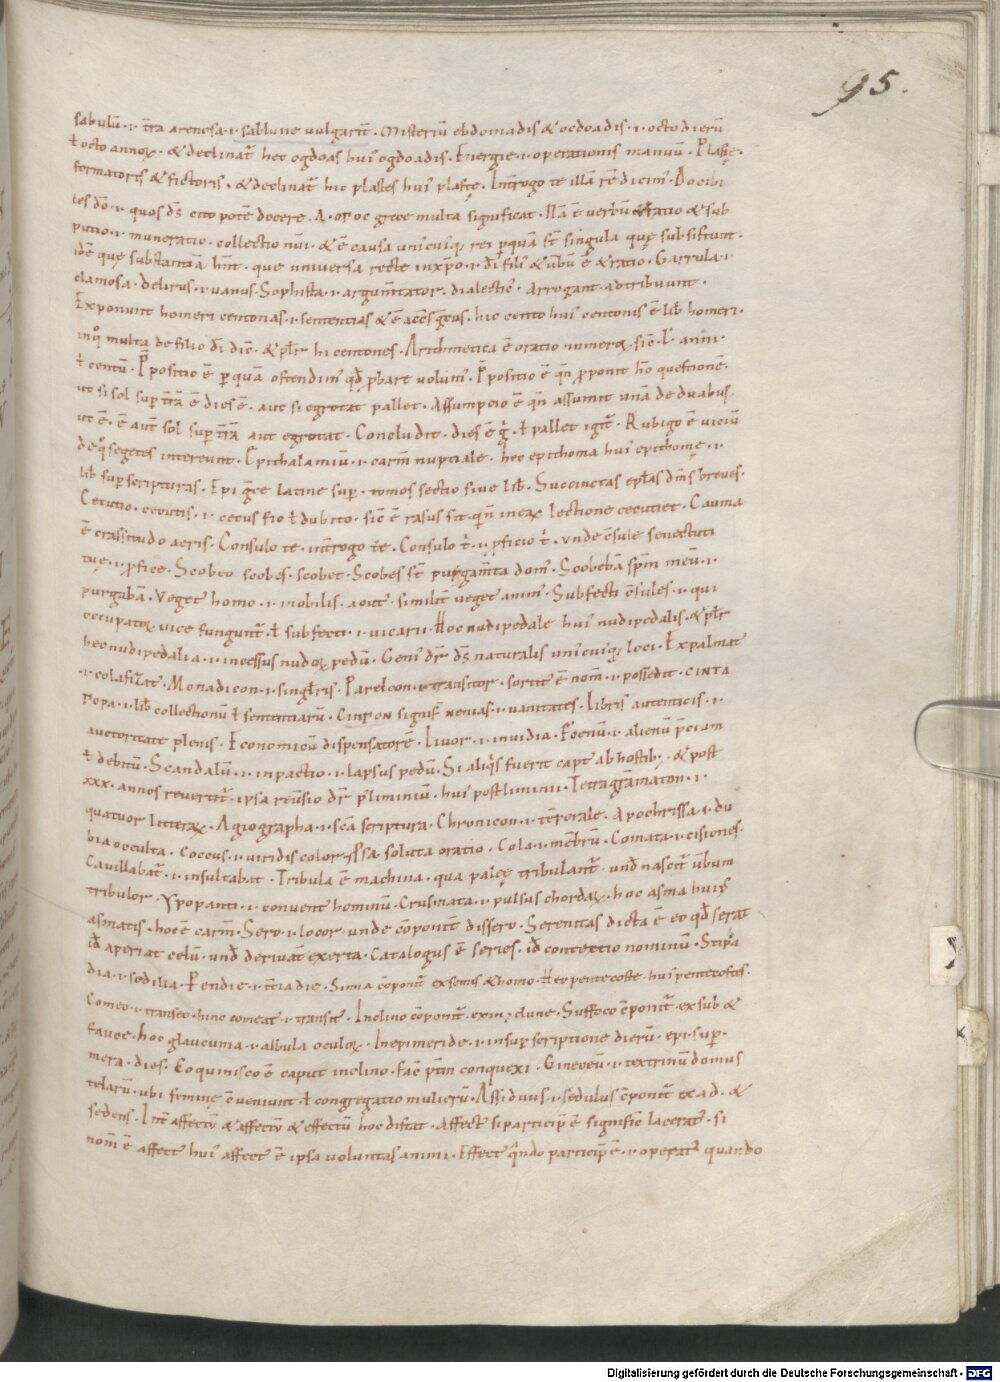 95.
sabulū · i · t̄ra arenosa · i · sablune vulgarit̄ · Misteriū ebdomadis & ocdoadis · i · octo dierū
ł octo annoꝝ · & declinat̄ hec ogdoas hui ogdoadis · Energie · i · operationis manuū · Plastę ·
formatoris & fictoris · & declinat̄ hic plastes hui plastę · Int̄rogo te illā rē dicim̄ · Docibi
les dō · i · quos d̄s cito potē docere · Λ · oγοc grece multa significat · Nā ē verbū ratio & sub
putio · i · muneratio · collectio nūi · & ē causa uni cuiq; rei p quā st̄ singula quę subsistunt ·
idē quę substantiā hn̄t · que universa recte in xp̄o · i · dī filī & ūbū ē & ratio · Garrula · i ·
clamosa · delirus · i · vanus · Sophista · i · argum̄tator · dialectic̄ · Arrogant · adtribuunt ·
Exponunt homeri centonas · i · sententias & ē acc̄s grec̄us · hic cento hui centonis ē lib̄ homeri ·
in q̊ multa de filio dī dic̄ · & pl̄r hi centones · Arithmetica ē oratio numeroꝝ sic̄ · L · anni ·
ł centū · P̄positio ē per quā ostendim̄ qd̄ p̄bare volum̄ · P̄positio ē qn̄ proponit h̄o questionē ·
ut si sol sup t̄rā ē dies ē · aut si egrotat pallet · Assumptio ē qn̄ assumit unā de duabus ·
ut ē · ē aut̄ sol sup t̄rā aut egrotat · Concludit · dies ē g̊ · ł pallet igit̄ · Rubigo ē viciū
de q̊ segetes intereunt · Epithalamiū · i · carm̄ nuptiale · hec epithoma hui epithomę · i ·
lib̄ sup scripturas · Epi gr̄ce latine sup · tomos sectio sive lib̄ · Succinctas ep̄las dm̄s breves ·
Cecutio · cecutis · i · cecus fio ł dubito · sic̄ ē rasus sit · qn̄ in eaꝝ lectione cecutiet · Cauma
ē crassitudo aeris · Consulo te · int̄rogo te · Consulo t̄ · i · p̄ficio t̄ · unde c̄sule senectuti
tuę · i · p̄fice · Scobeo scobes · scobet · Scobes st̄ purgam̄ta dom̄ · Scobebā sp̄m meū · i ·
purgabā · Veget homo · i · mobilis · acut̄ · similit̄ veget anim̄ · Subfecti c̄sules · i · qui
occupatoꝝ vice fungunt̄ · ł subfecti · i · vicarii · Hoc nudipedale hui nudipedalis · & pl̄r
hec nudipedalia · i · incessus nudoꝝ pedū · Geni dr̄ · d̄s naturalis uni cuiq; loci · Expalmat
· i · colafizat · Monadicon · i · singl̄ris · Parelcon · i · transitor · sortit̄ ē nom̄ · i · possedit · CINTA
γopa · i · lib̄ collectionū ł sententiarū · signif̄ nenias · i · vanitates · Libris autenticis · i ·
auctoritate plenis · Economicū dispensatorē · Livor · i · invidia · Foenū · i · alienū p̄cium
ł debitū · Scandalū · i · inpactio · i · lapsus pedū · Si aliq̄s fuerit capt̄ ab hostib; · & post
xxx · annos revertit̄ · ipsa reūsio dr̄ p̄liminiū · hui postliminii · Tetragram̄aton · i ·
quatuor litteraꝝ · Agiographa · i · sc̄a scriptura · Chronicon · i · tēporale · Apochrissa · i · du
bia occulta · Coccus · i · viridis color · soluta oratio · Cola · i · mēbrū · Comata · i · cisiones ·
Cavillabat̄ · i · insultabat · Tribula ē machina · qua palee tribulant̄ · und̄ nascit̄ ūbum
tribulor · Ypopanti · i · convent̄ hominū · Crusmata · i · pulsus chordaꝝ · hoc asma huius
asmatis · hoc ē carm̄ · Sero · i · locor unde cōponit̄ dissero · Serenitas dicta ē eo qd̄ serat
id̄ aperiat celū · und̄ derivat̄ exerta · Catalogus ē series · id̄ contextio nominū · Stipa
dia · i · sedilia · Pendie · i · t̄cia die · Simia cōponit̄ ex semis & homo · Hec pentecoste · hui pentecostes ·
Comeo · i · transeo · hinc comeat · i · transit · Inclino cōponit̄ ex in; clune · Suffoco cōponit̄ · ex sub &
fauce · hoc glaucuma · i · albula oculoꝝ · In epimeride · i · in sup scriptione dierū · epi · sup ·
mera · dies · Coquinisco ē caput inclino · Fac̄ p̄tin conquexi · Gineceū · i · textrinū domus
telarū · ubi feminę c̄veniunt · ł congregatio mulierū · Assiduus · i · sedulus cōponit̄ ex ad · &
sedens · Int̄ affectū & affectū & effectū hoc distat · Affect̄ si particip̄ ē significat̄ lacerat̄ · si
nom̄ ē affect̄ hui affect̄ ē ipsa voluntas animi · Effect̄ q̄ndo particip̄ ē · i · operat̄ quando
Digitalisierung gefördert durch die Deutsche Forschungsgemeinschaft · DFG